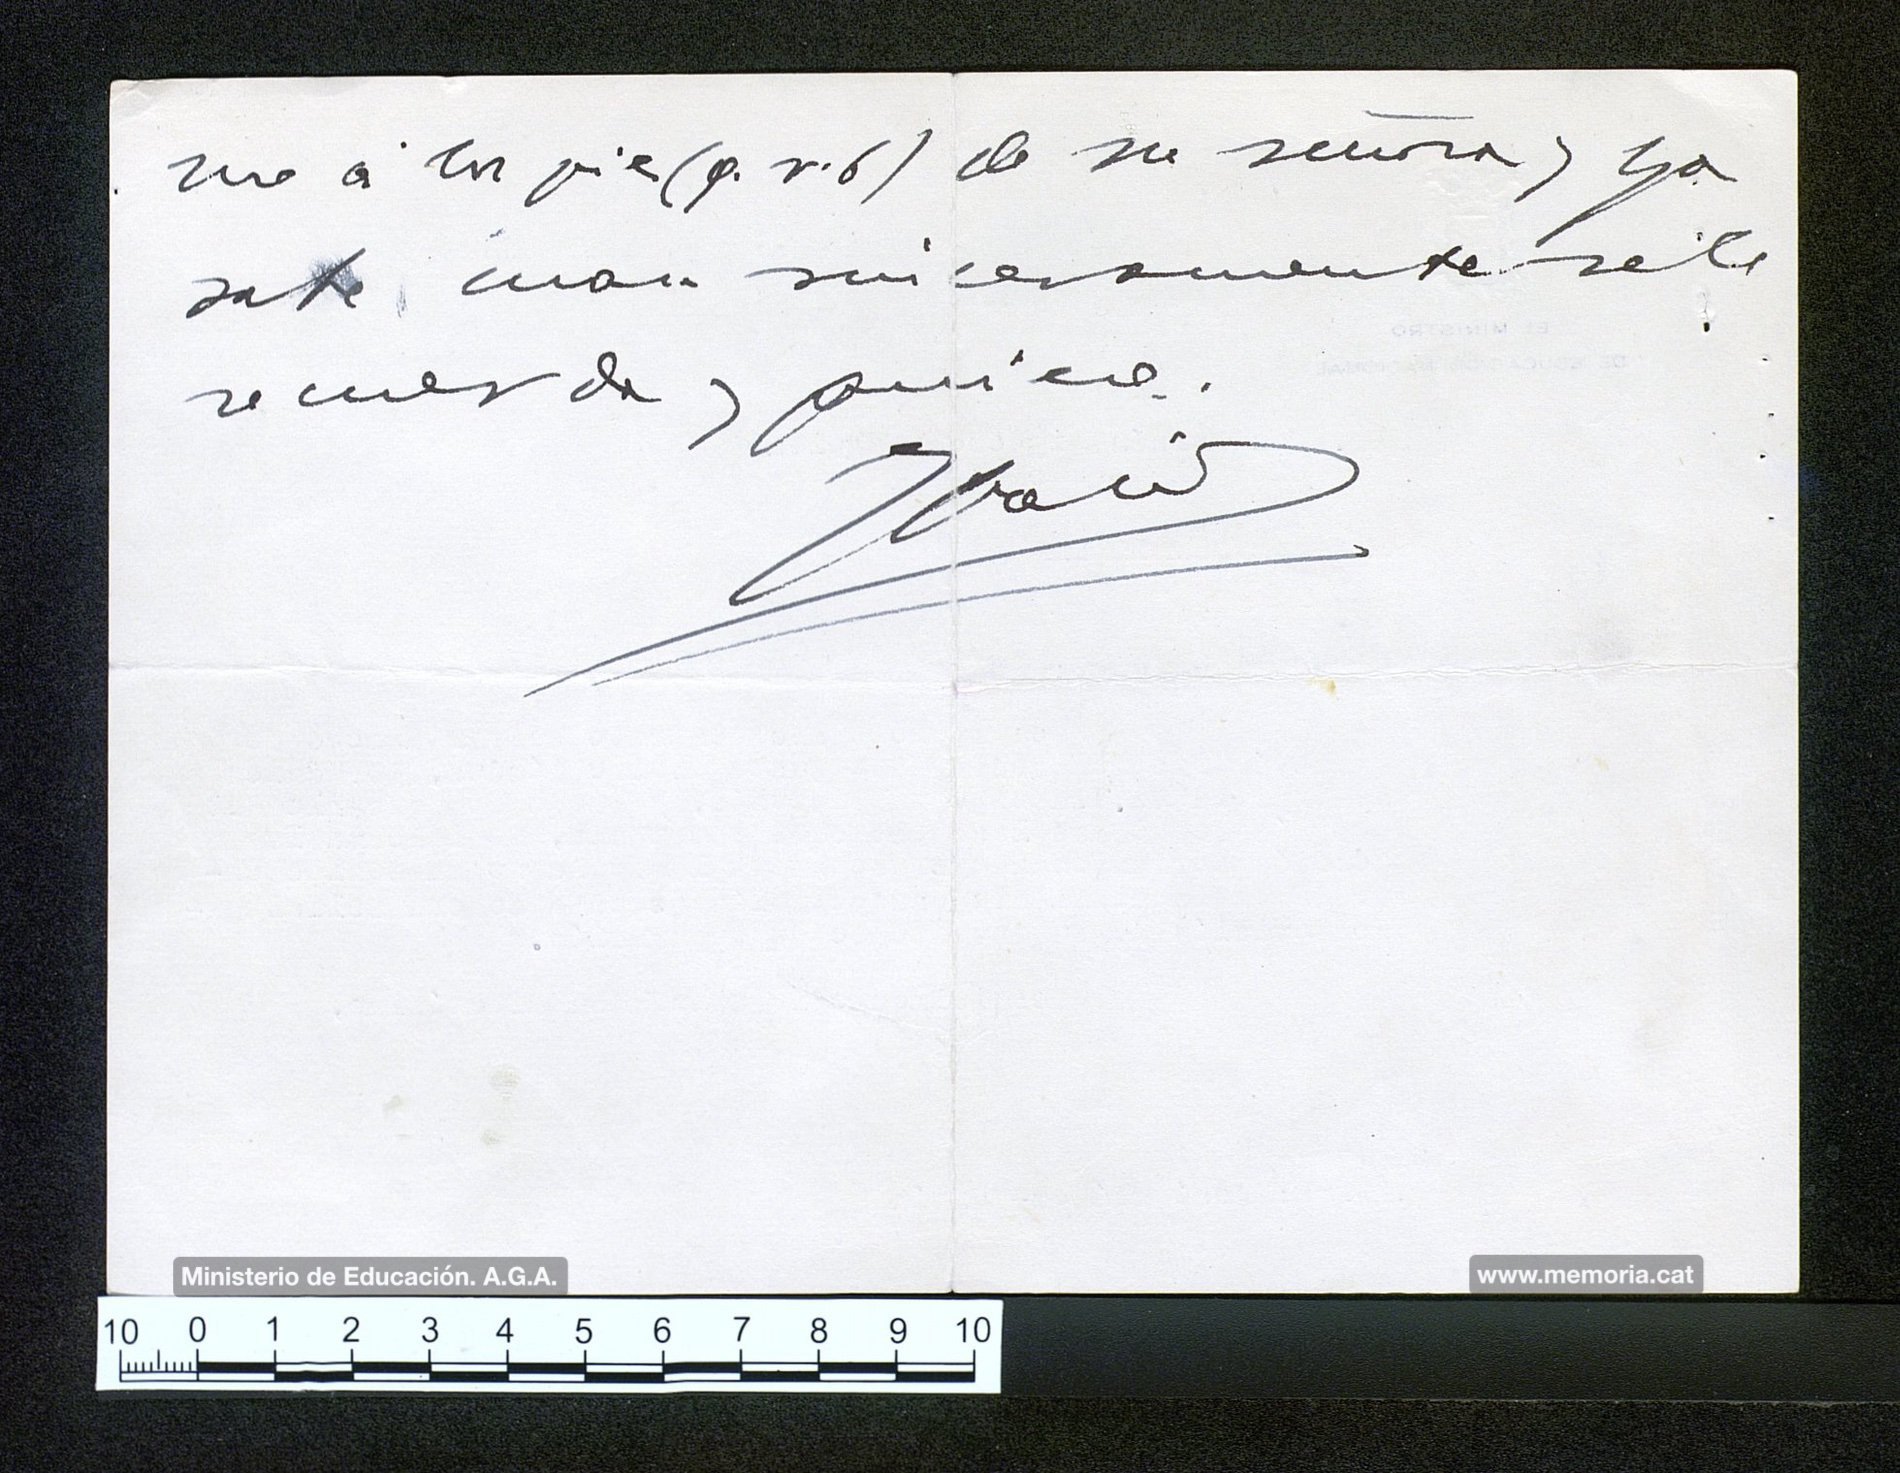 me á los pies (q. v. b) de su señora y ya
sabe cuan sinceramente se le
recuerda y quiere.
Ibañ
EL MINISTRO
DE EDUCACION NACIONAL
Ministerio de Educación. A.G.A.
www.memoria.cat
10 0 1 2 3 4 5 6 7 8 9 10